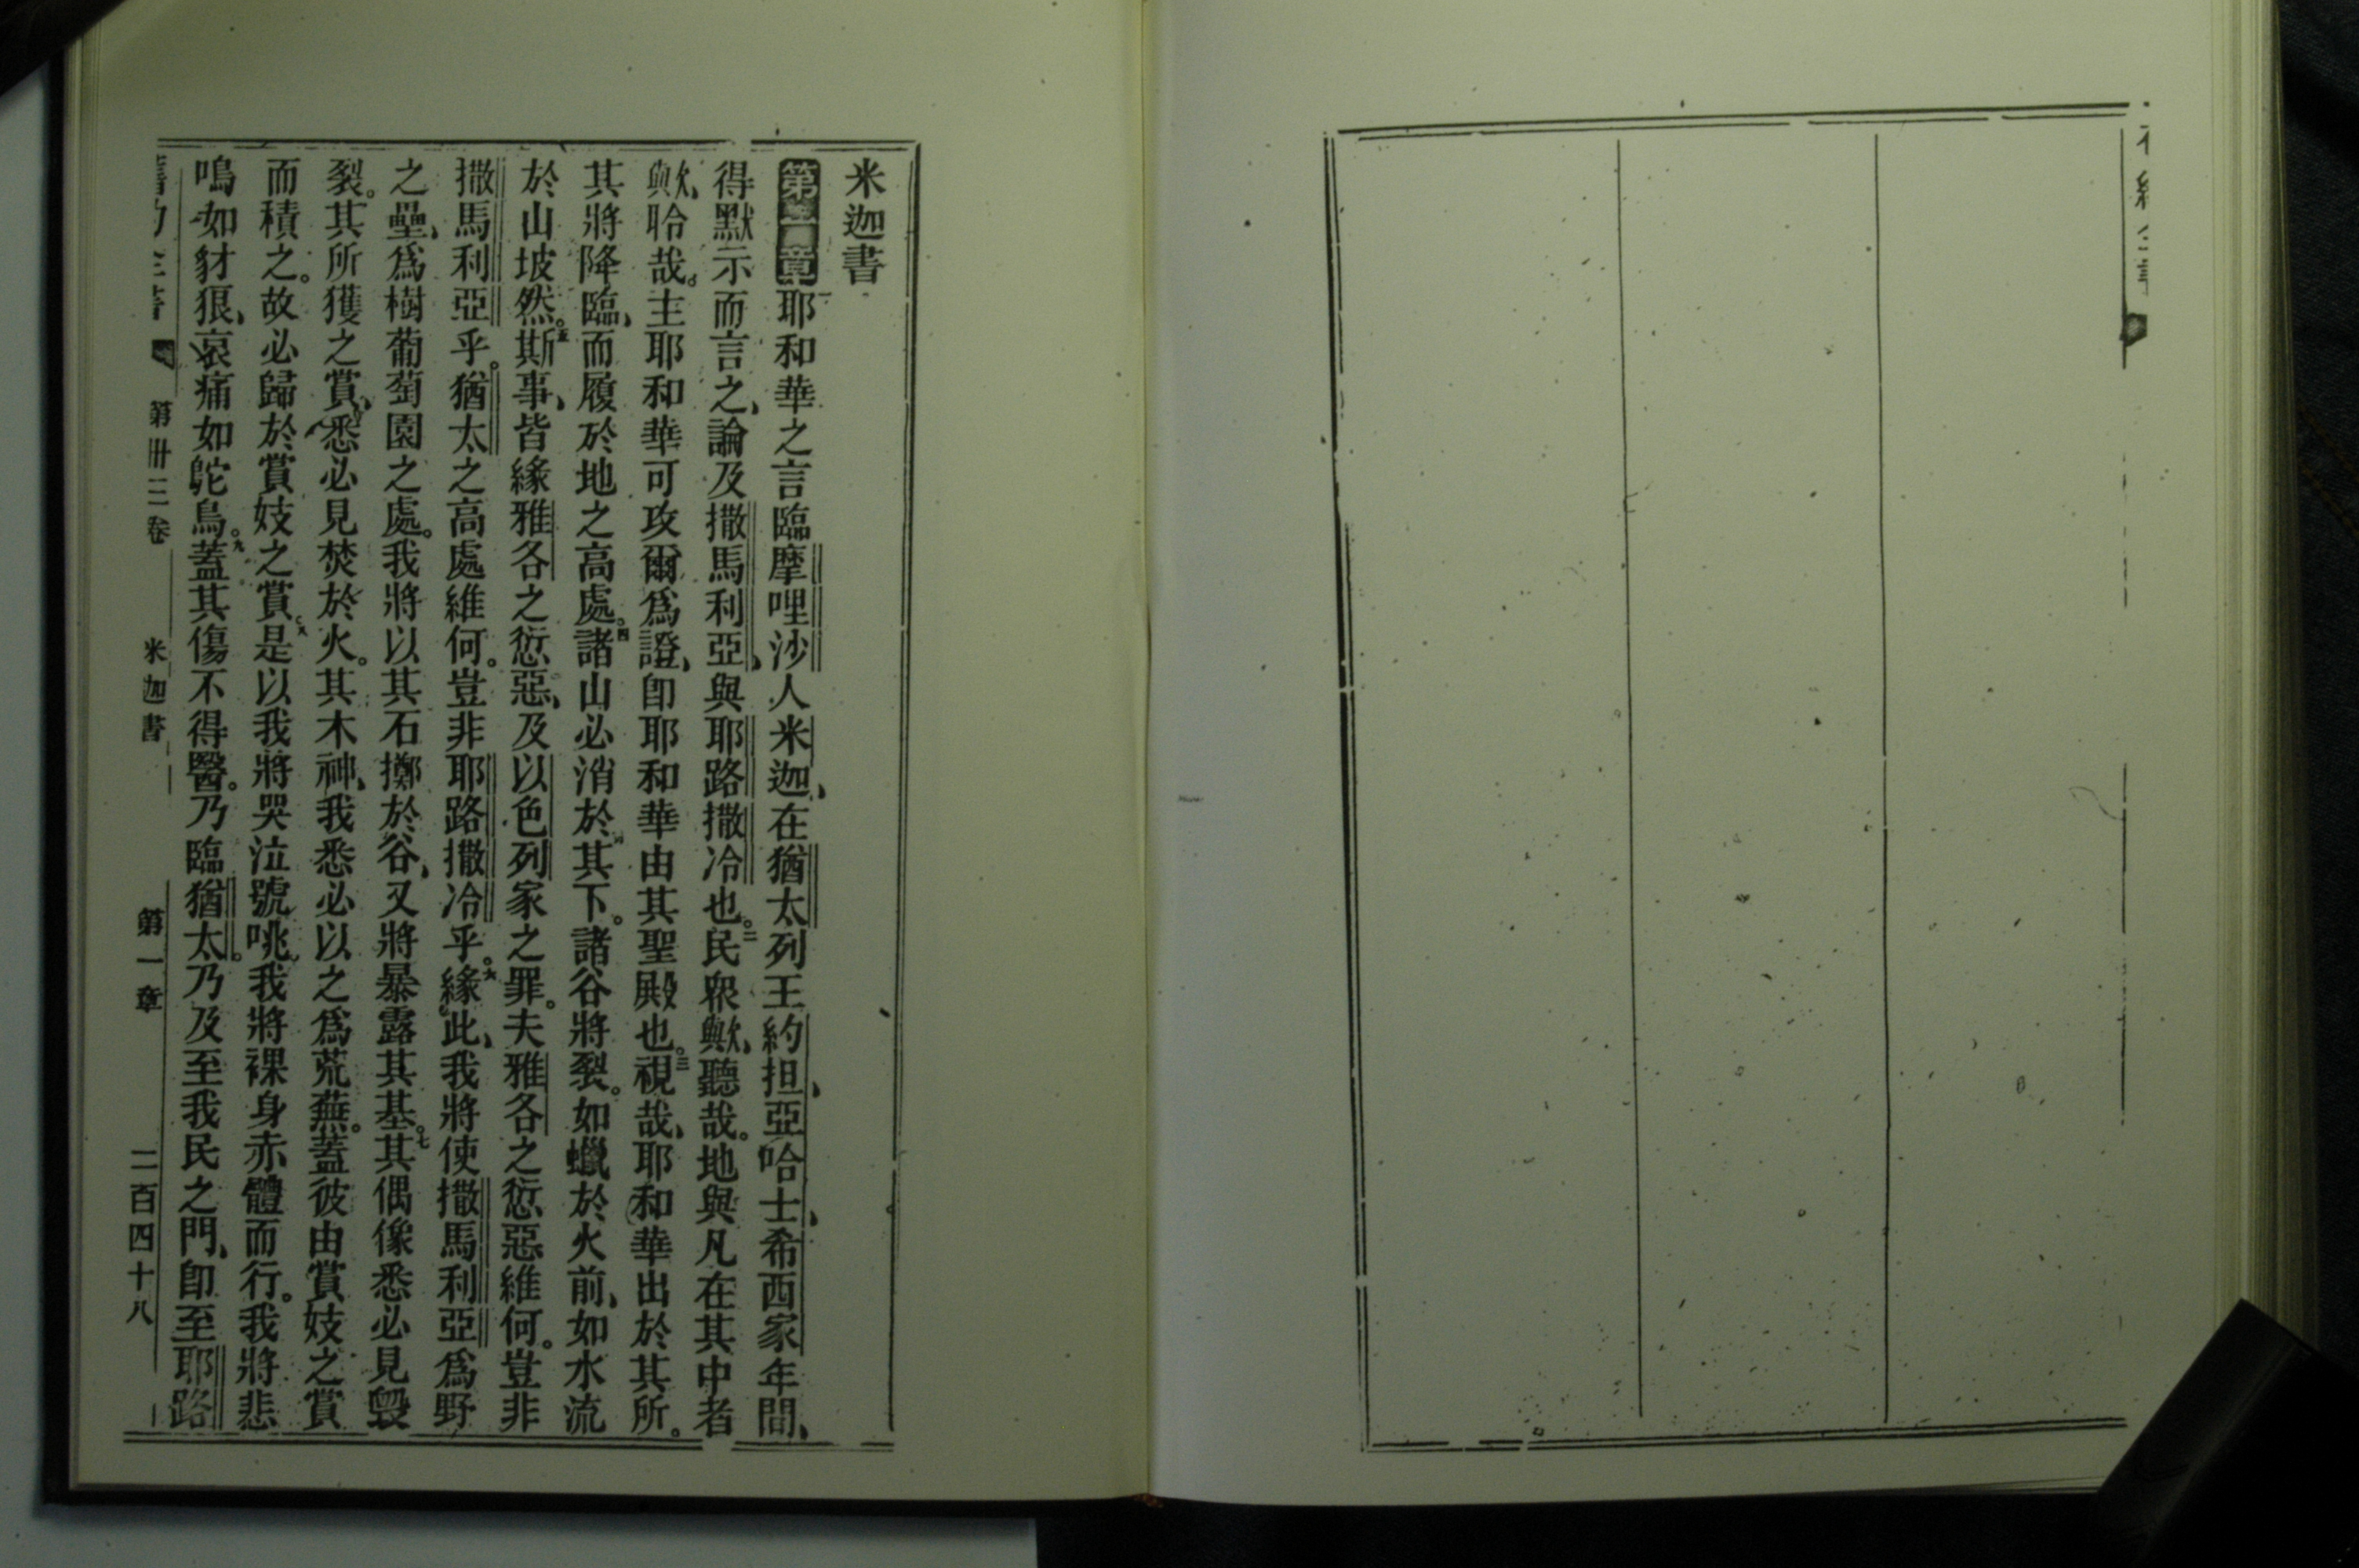 米迦書
第一章耶和華之言臨摩哩沙人米迦、在猶太列王約担、亞哈士、希西家年間、
得默示而言之、論及撒馬利亞、與耶路撒冷也。二民眾歟、聽哉。地與凡在其中者
歟、聆哉。主耶和華可攻爾爲證、卽耶和華由其聖殿也。三視哉、耶和華出於其所。
其將降臨、而履於地之高處。四諸山必消於其下。諸谷將裂。如蠟於火前、如水流
於山坡然。五斯事、皆緣雅各之愆惡、及以色列家之罪。夫雅各之愆惡維何。豈非
撒馬利亞乎。猶太之高處維何。豈非耶路撒冷乎。六緣此、我將使撒馬利亞爲野
之壘、爲樹葡萄園之處。我將以其石擲於谷、又將暴露其基。七其偶像悉必見毀
裂。其所獲之賞、悉必見焚於火。其木神、我悉必以之爲荒蕪。蓋彼由賞妓之賞
而積之。故必歸於賞妓之賞。八是以我將哭泣號咷、我將裸身赤體而行。我將悲
鳴如豺狼、哀痛如鴕鳥。九蓋其傷不得醫。乃臨猶太。乃及至我民之門、卽至耶路
舊約全書 第卅三卷 米迦書 第一章 二百四十八